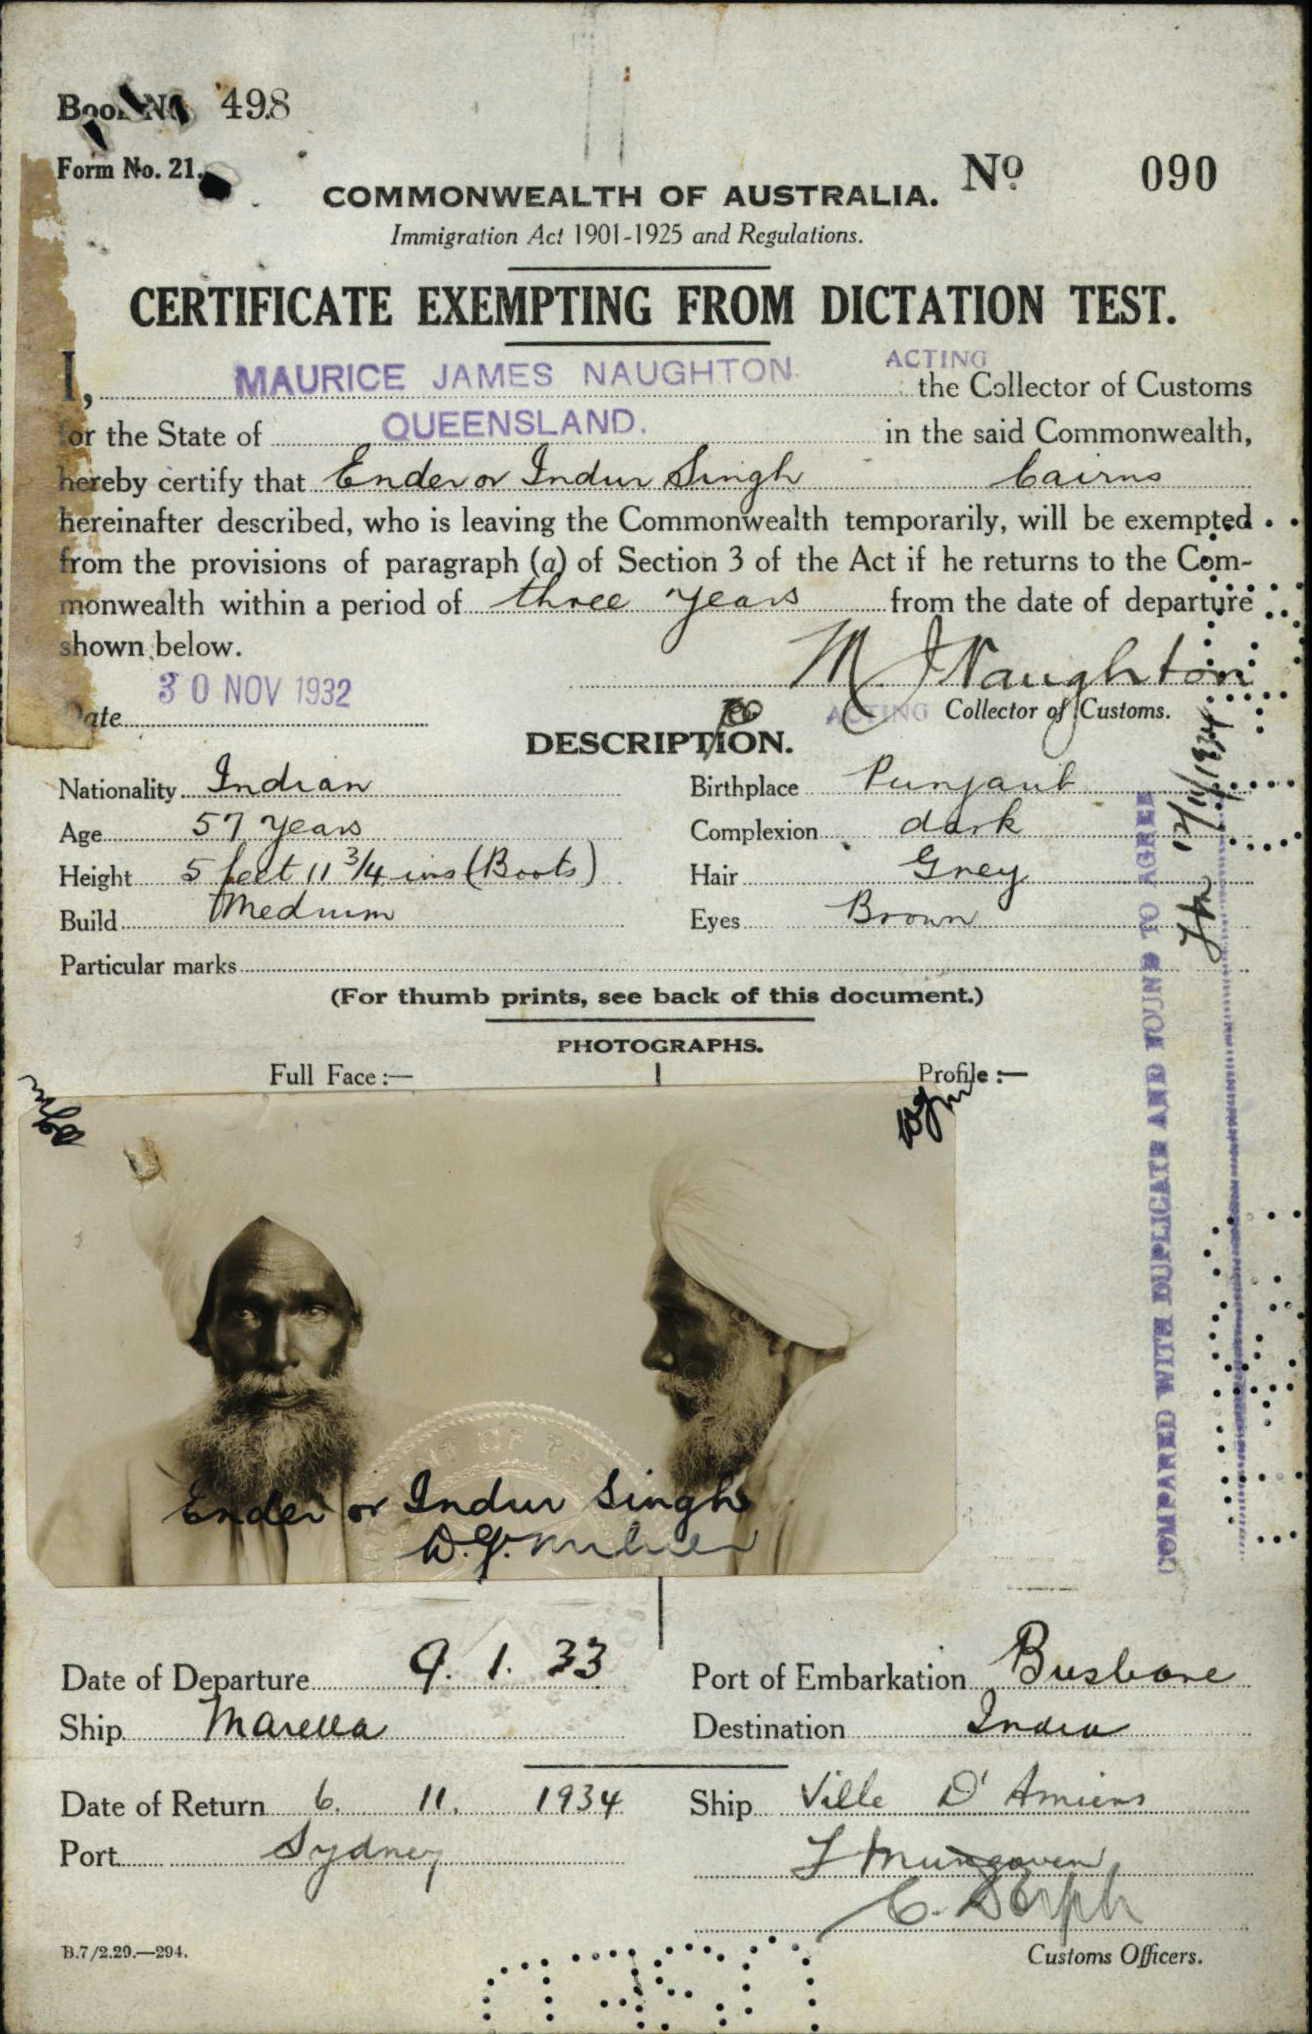 Book No. 498
Form No. 21.
No 090
COMMONWEALTH OF AUSTRALIA.
Immigration Act 1901-1925 and Regulations.
CERTIFICATE EXEMPTING FROM DICTATION TEST.
I, MAURICE JAMES NAUGHTON ACTING the Collector of Customs
for the State of QUEENSLAND. in the said Commonwealth,
hereby certify that Ender or Indur Singh Cairns
hereinafter described, who is leaving the Commonwealth temporarily, will be exempted
from the provisions of paragraph (a) of Section 3 of the Act if he returns to the Com-
monwealth within a period of three years from the date of departure
shown below.
M J Naughton
Date 30 NOV 1932
ACTING Collector of Customs.
DESCRIPTION.
Nationality Indian Birthplace Punjaub
Age 57 years Complexion dark
Height 5 feet 11 3/4 ins (Boots) Hair Grey
Build Medium Eyes Brown
Particular marks
(For thumb prints, see back of this document.)
PHOTOGRAPHS.
Full Face :— Profile :—
Ender or Indur Singh
COMPARED WITH DUPLICATE AND FOUND TO AGREE
12/11/1934
Date of Departure 9. 1. 33 Port of Embarkation Brisbane
Ship Marella Destination India
Date of Return 6. 11. 1934 Ship Ville D' Amiens
Port Sydney
Customs Officers.
B.7/2.29.—294.